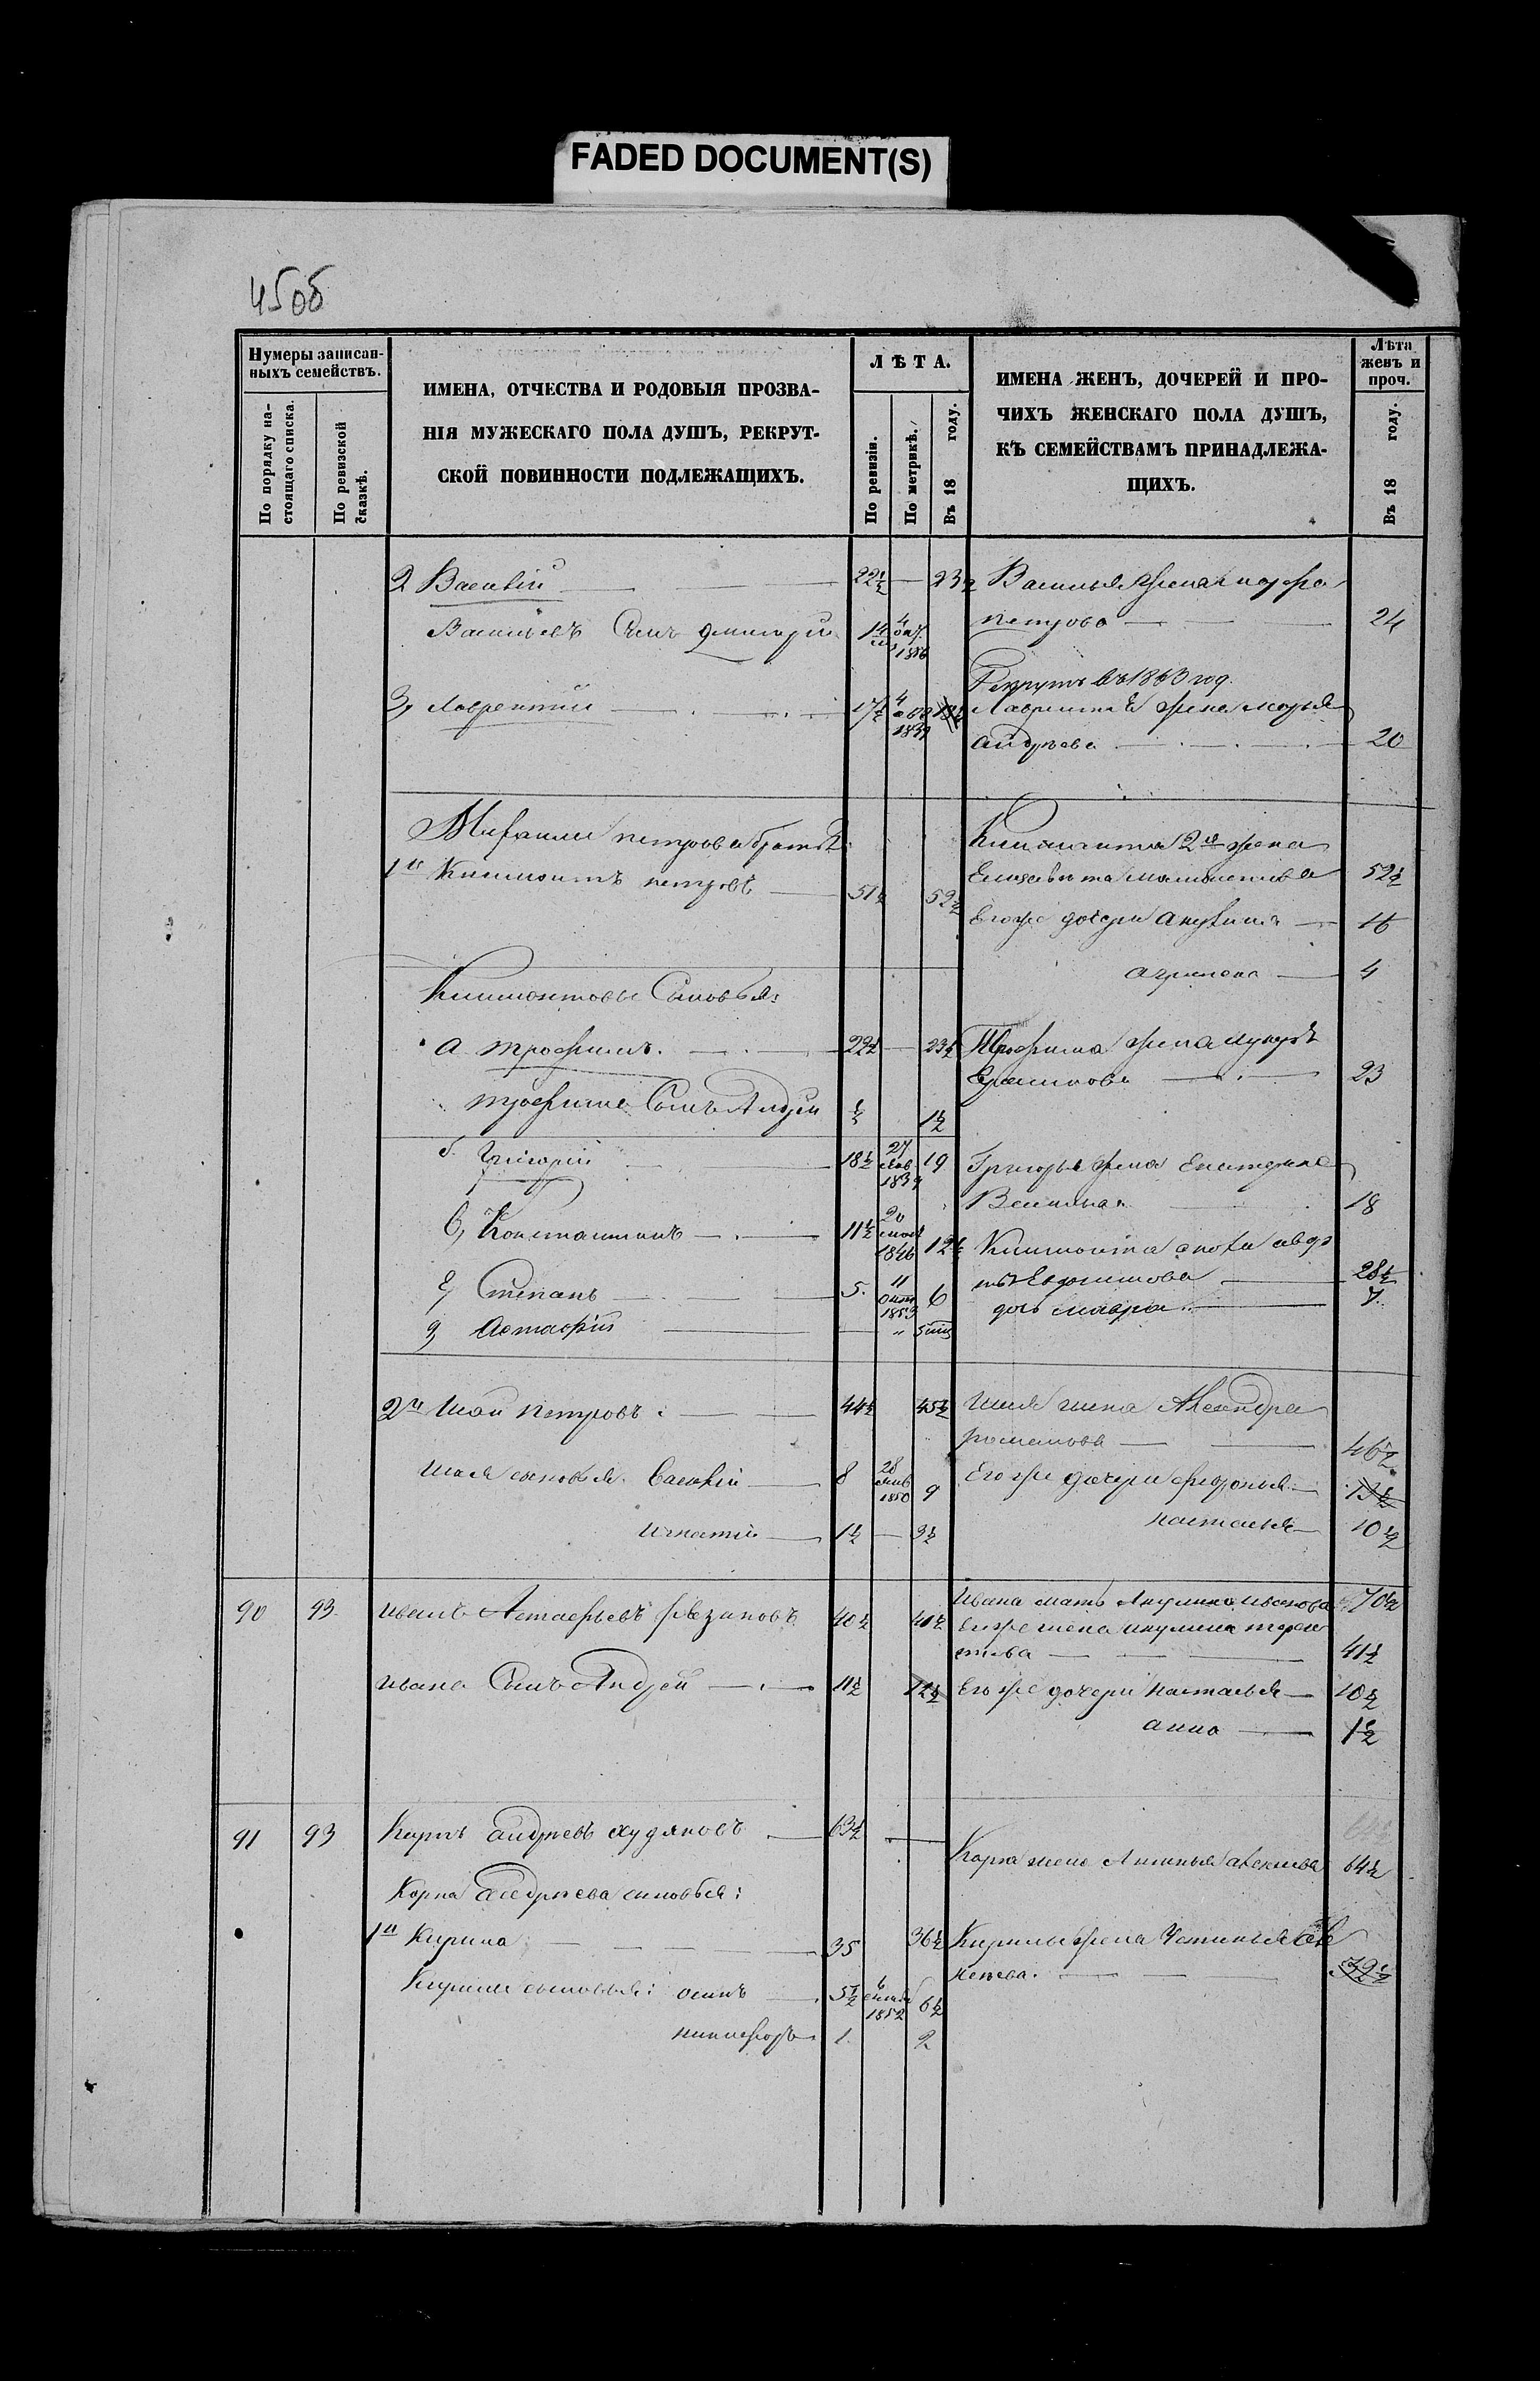 FADED DOCUMENT(S)
45об
Нумеры записан-
ныхъ семействъ.
По порядку на-
стоящаго списка.
По ревизской
сказкѣ.
ИМЕНА, ОТЧЕСТВА И РОДОВЫЯ ПРОЗВА-
НІЯ МУЖЕСКАГО ПОЛА ДУШЪ, РЕКРУТ-
СКОЙ ПОВИННОСТИ ПОДЛЕЖАЩИХЪ.
ЛѢТА.
По ревизіи.
По метрикѣ.
Въ 18 году.
ИМЕНА ЖЕНЪ, ДОЧЕРЕЙ И ПРО-
ЧИХЪ ЖЕНСКАГО ПОЛА ДУШЪ,
КЪ СЕМЕЙСТВАМЪ ПРИНАДЛЕЖА-
ЩИХЪ.
Лѣта
женъ и
проч.
Въ 18 году.
2 Василій 22½ — 23½ Василья жена
петрова — 24
Васильевъ Сынъ Дмитрій 4 1856
Рекрутъ въ 1863 год.
3, Лаврентій — 17½ 4 авг 1839 Лаврентья жена марья
андреева — 20
Михаила петрова братья
1й Климонтъ петровъ — 51½ 52½
Климонта 2я жена
Елизавета 52½
Его же дочери Акулина — 16
агрипена — 4
Климонтовы Сыновья:
а трофимъ. — 22½ — 23½ Трофима жена
23
трофима Сынъ Андрей ½ 1½
б. Григорій — 18½ 27 янв 1839 19 Григорья жена Екатерина
Васильева 18
в, Константинъ — 11½ 20 1846 12½ Климонта сноха авдо
тья Евдокимова — 28½
дочь мавра — 7.
г, Степанъ — 5. 11 Окт 1853 6
д Астафій — " 5 мц
2й Исай петровъ. — 44½ 45½ Исая жена Алексндра
романова — 46½
Исая сыновья. Василій — 8 28 янв 1850 9 Его же дочери федосья — 13½
игнатій — 1½ — 2½ настасья — 10½
90 93. иванъ Астафьевъ рѣзановъ 40½ 41½ Ивана мать Акулина иванова 70½
его же жена акулина терен
тьева — 41½
ивана Сынъ Андрей — 11½ 12½ Его же дочери настасья — 10½
анна — 1½
91 93 Карпъ андреевъ худяковъ — 63½ —
Карпа жена алексѣева 64½
Карпа андреева сыновья:
1й Кирила — 35 36½ Кирилы жена Устинья
39½
Кирилы сыновья: осипъ — 5½ 6 1852 6½
никифоръ 1. 2